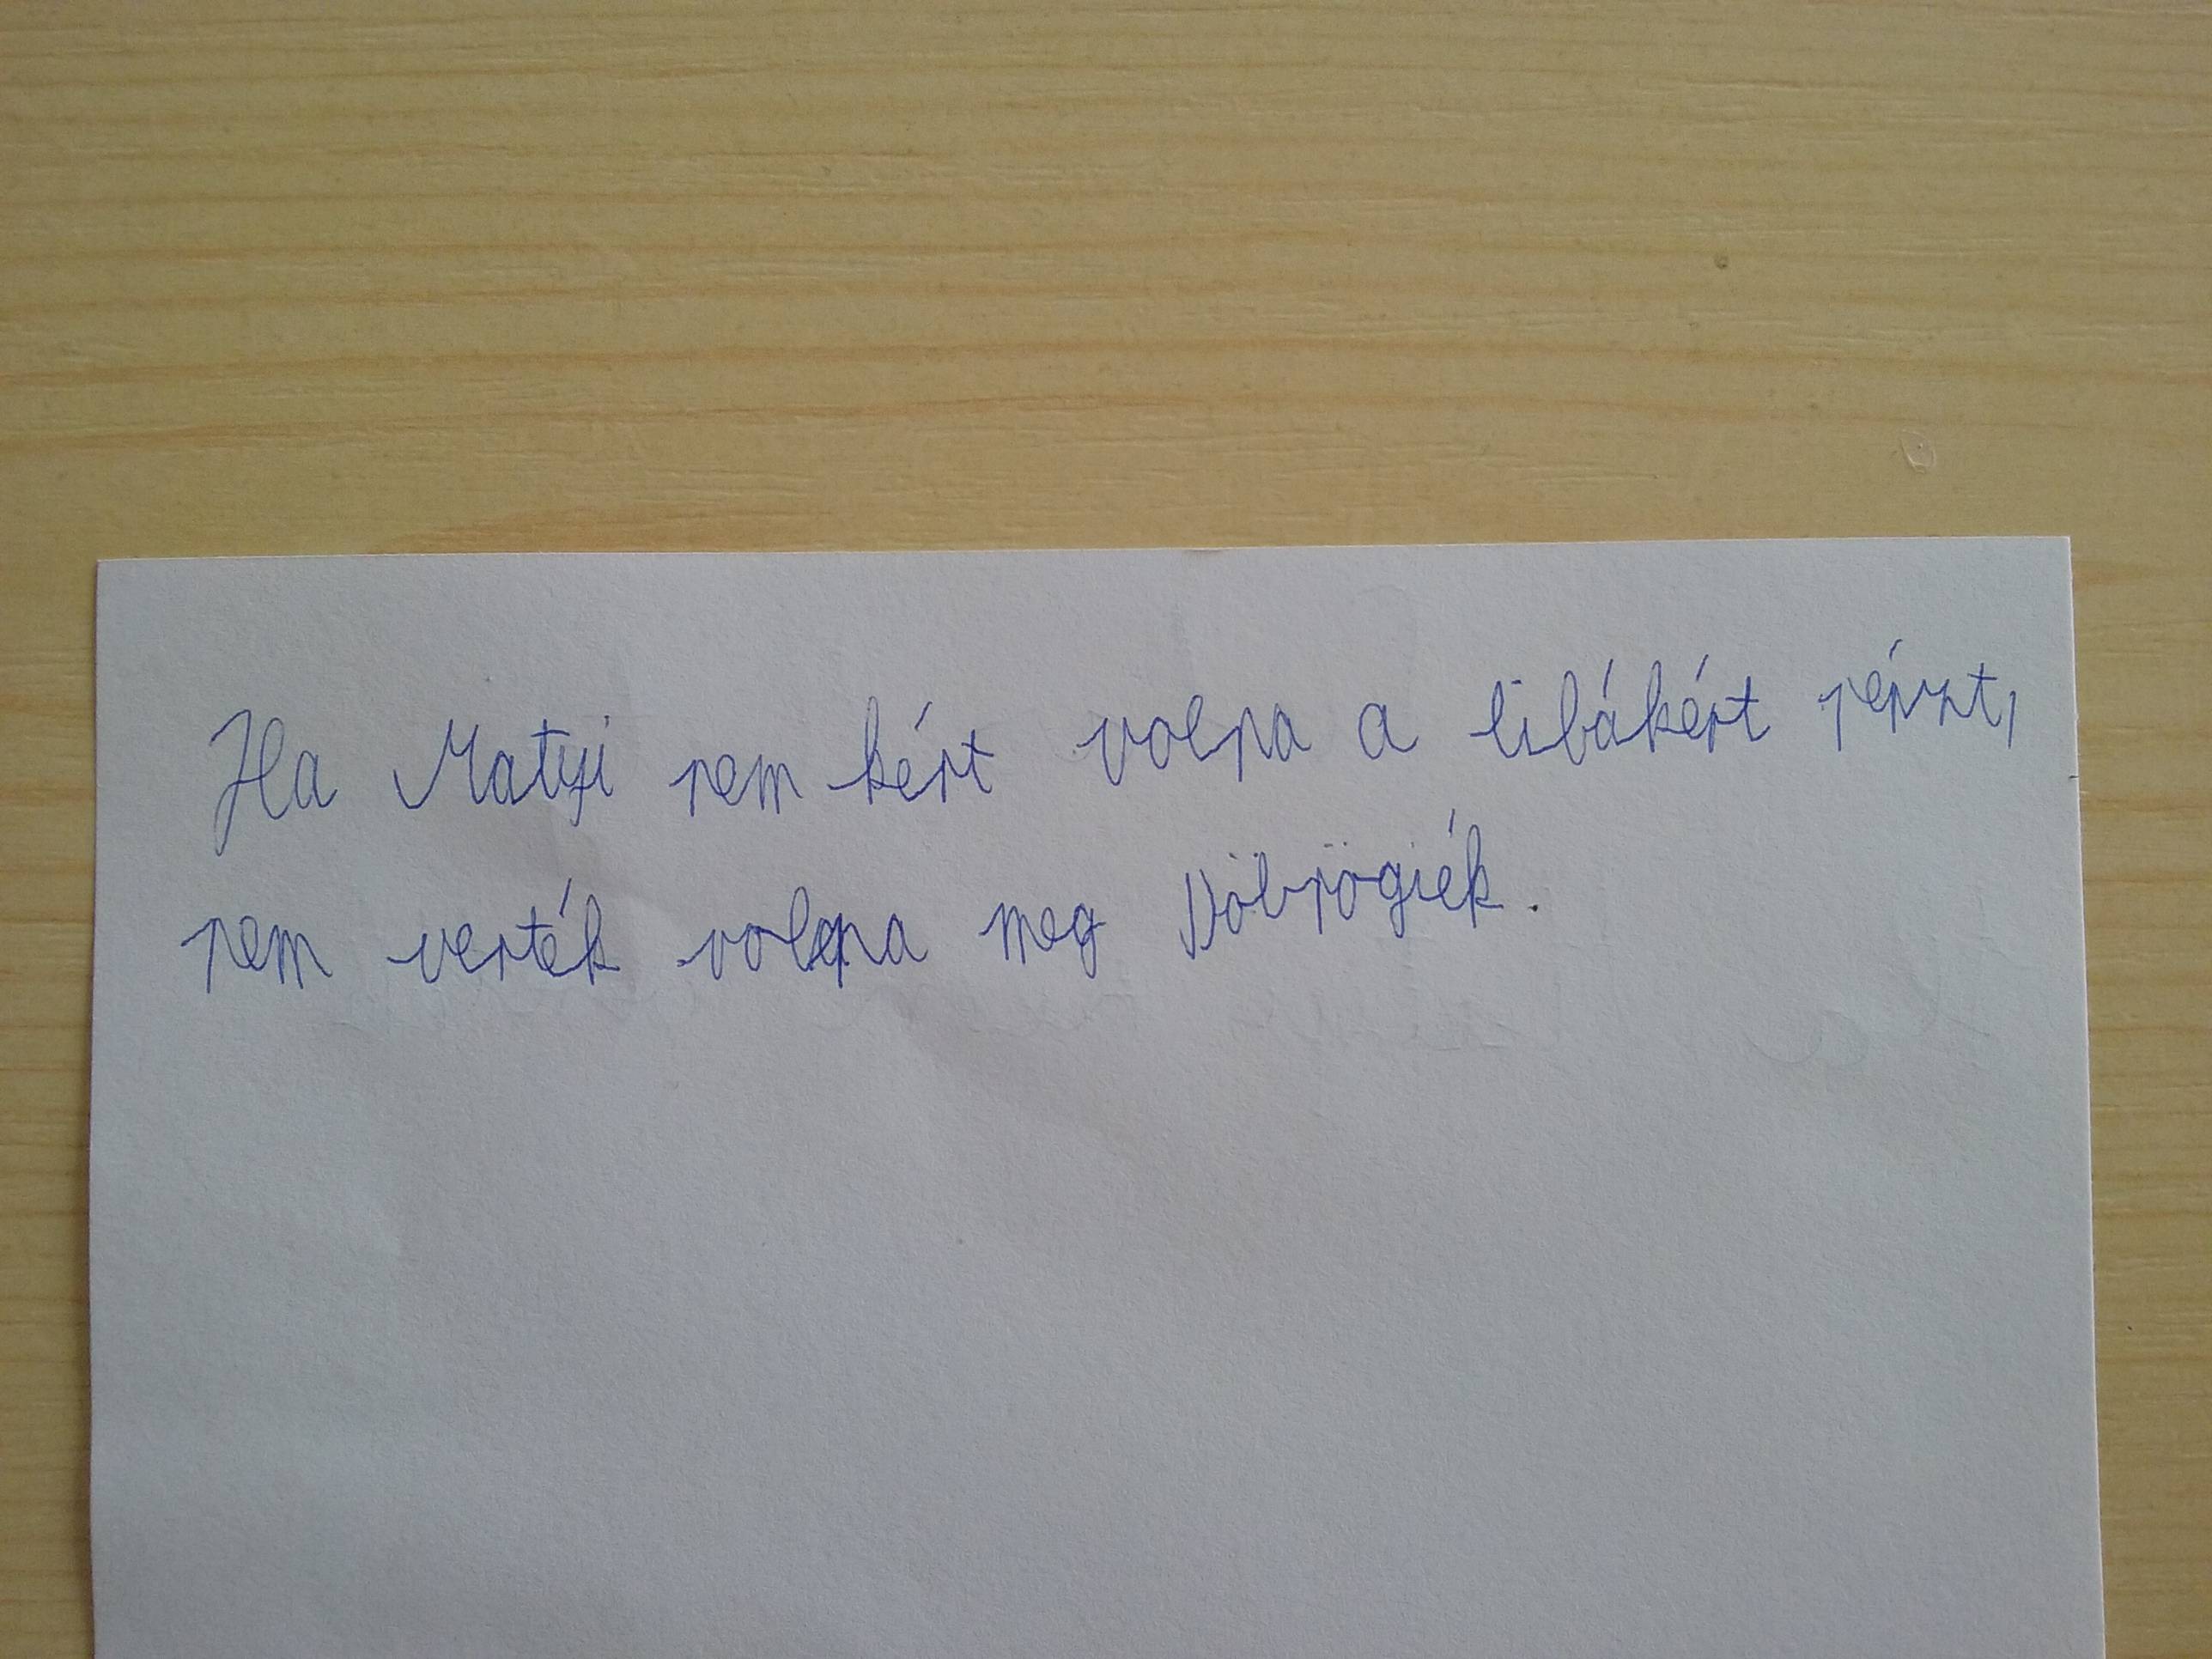 Ha Matyi nem kért volna a libákért pénzt,
nem verték volna meg Döbrögiék.